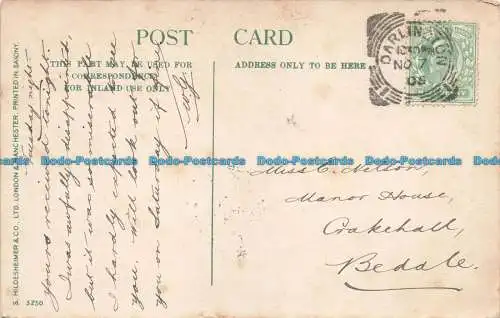 POST CARD
THIS PART MAY BE USED FOR
CORRESPONDENCE
FOR INLAND USE ONLY
ADDRESS ONLY TO BE HERE
DARLINGTON
NO 7
05
S. HILDESHEIMER & CO., LTD. LONDON & MANCHESTER. PRINTED IN SAXONY.
S. 5250
Tuesday night
Yours received tonight.
I was awfully disappointed,
but it was so miserable
I hardly expected see
you. Will look out for
you on Saturday if fine
Miss C. Nelson,
Manor House,
Crakehall,
Bedale.
Dodo-Postcards Dodo-Postcards Dodo-Postcards Dodo-Postcards Dodo-Postcards